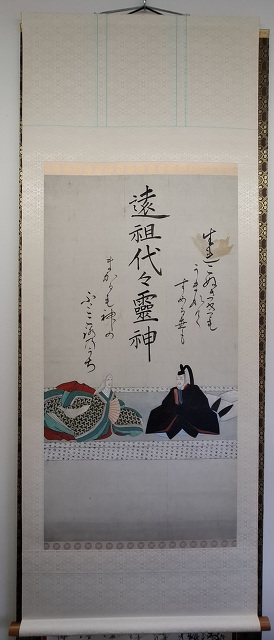 生れこぬさきも
うまれて
すめる世も
遠祖代々靈神
まかるも神の
ふところのうち